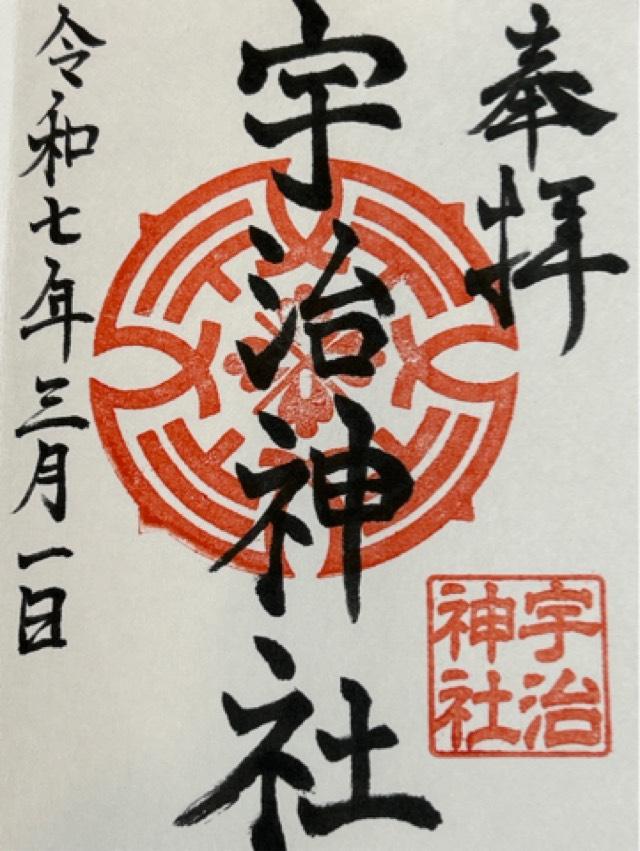 奉拝
宇治神社
令和七年三月一日
宇治
神社